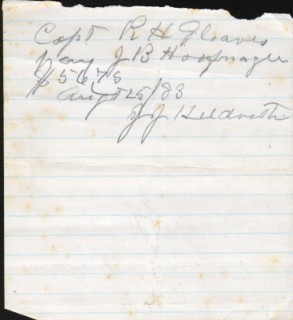 Capt R H Gleaves
pay J B Hoofnagle
$56 75
Augt 25/83
J J Hildreth